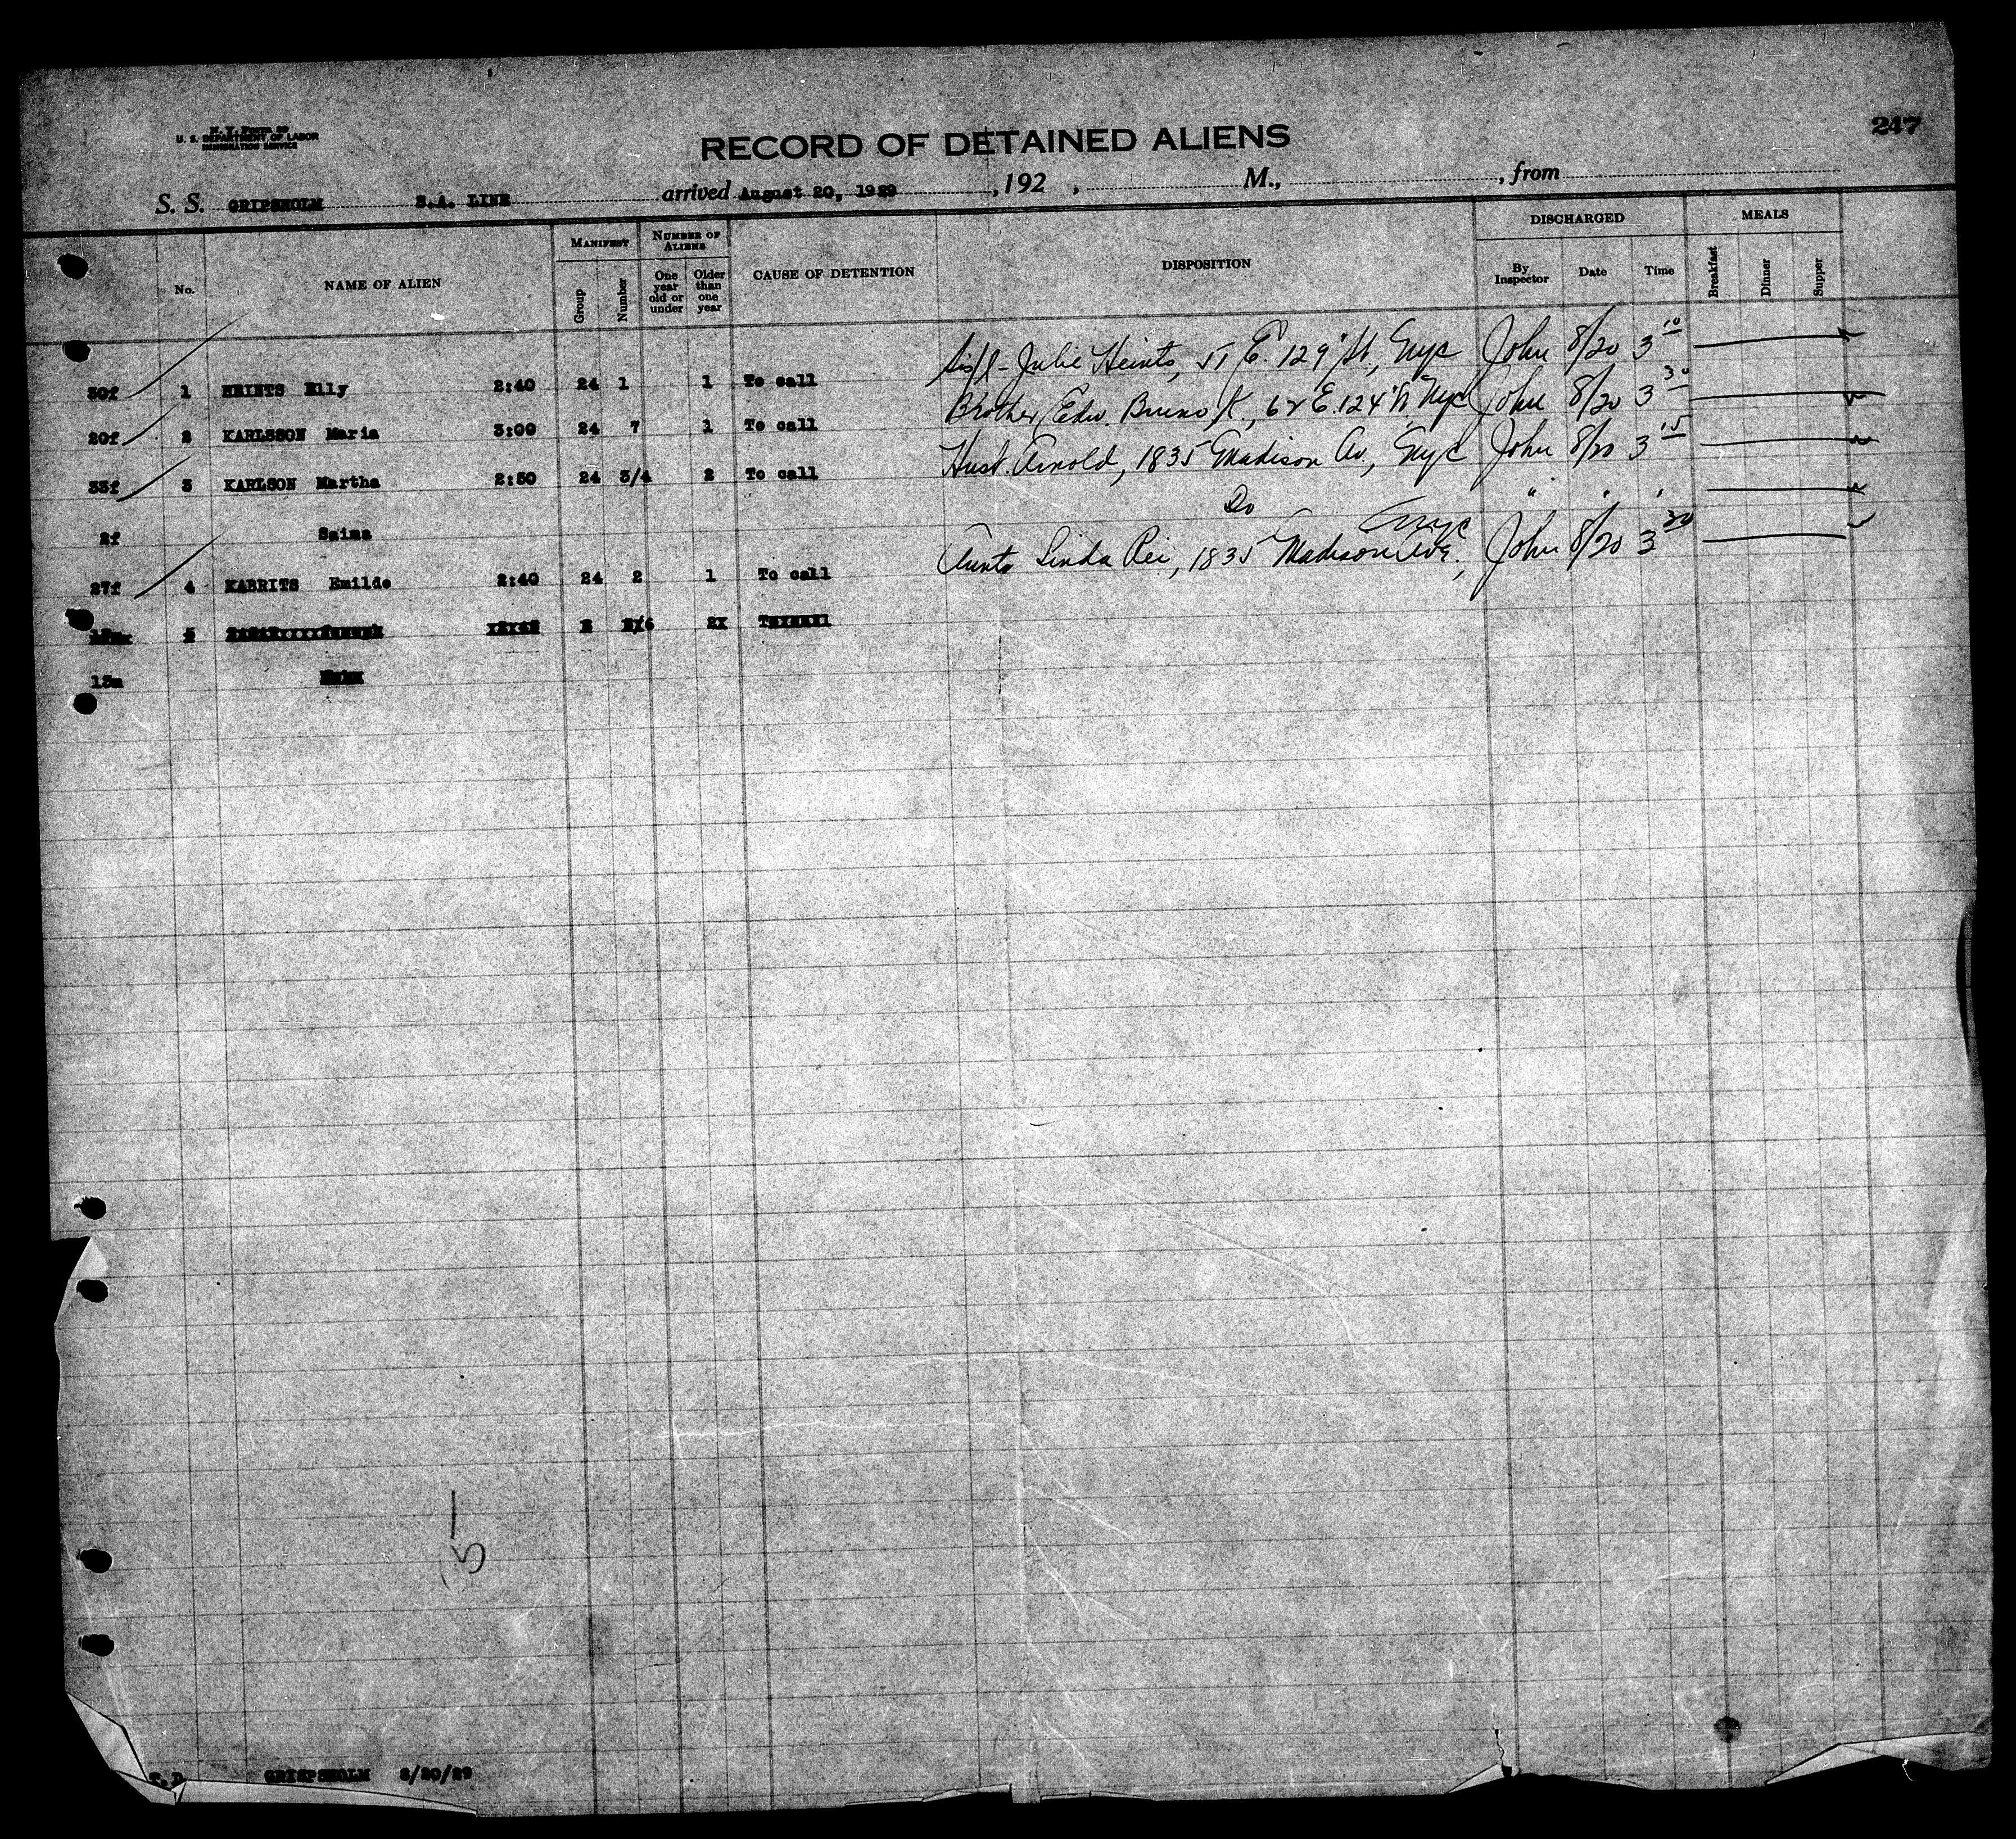 247
U. S. DEPARTMENT OF LABOR
IMMIGRATION SERVICE
RECORD OF DETAINED ALIENS
S. S. GRIPSHOLM S.A. LINE arrived August 20, 1929 , 192 , M., , from
No. NAME OF ALIEN MANIFEST Group Number NUMBER OF ALIENS One year old or under Older than one year CAUSE OF DETENTION DISPOSITION DISCHARGED By Inspector Date Time MEALS Breakfast Dinner Supper
30f 1 HEINTS Elly 2:40 24 1 1 To call Julie Heints, 51 E. 129 St, NYC John 8/20 3 10
20f 2 KARLSSON Maria 3:00 24 7 1 To call Brother Edw. Bruno K., 62 E. 124 NYC John 8/20 3 30
33f 3 KARLSON Martha 2:50 24 3/4 2 To call Husb. Arnold, 1835 Madison Av, NYC John 8/20 3 15
2f Saima Do " " "
27f 4 KABRITS Emilde 2:40 24 2 1 To call Aunt Linda Rei, 1835 Madison Ave, NYC John 8/20 3 30
5
13m
5
GRIPSHOLM 8/20/29